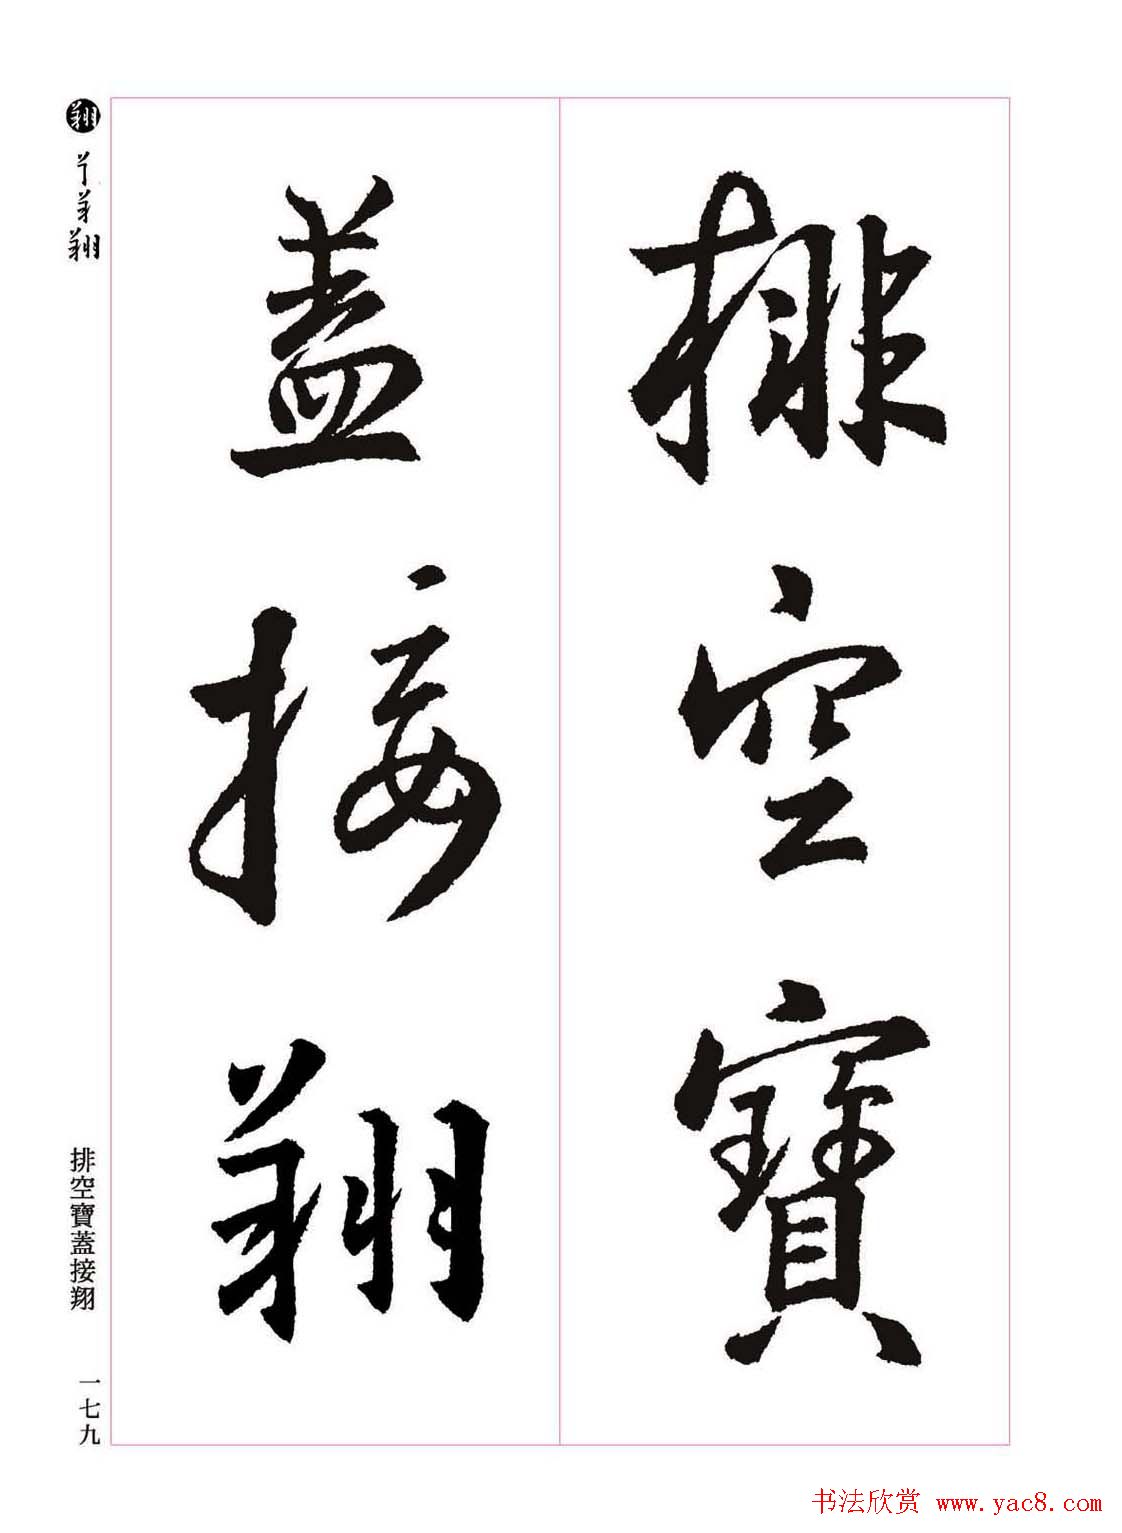 排空寶
蓋接翔
翔
翔
排空寶蓋接翔
一七九
书法欣赏 www.yac8.com